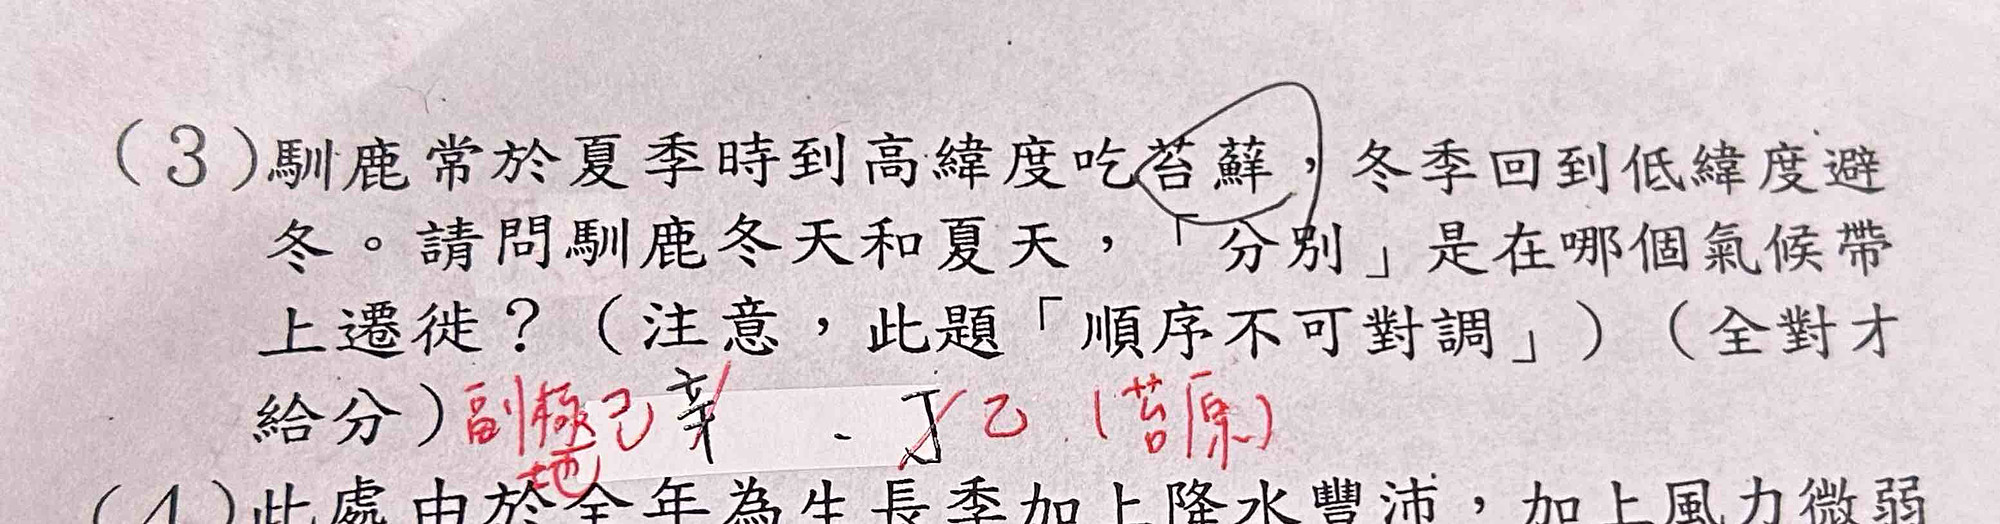 (3)馴鹿常於夏季時到高緯度吃苔蘚,冬季回到低緯度避
冬。請問馴鹿冬天和夏天,「分別」是在哪個氣候帶
上遷徙?(注意,此題「順序不可對調」)(全對才
給分)副極地己辛、丁乙(苔原)
(4)此處由於全年為生長季加上降水豐沛,加上風力微弱